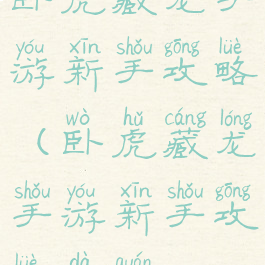 卧虎藏龙手
yóu xīn shǒu gōng lüè
游新手攻略
wò hǔ cáng lóng
(卧虎藏龙
shǒu yóu xīn shǒu gōng
手游新手攻
lüè dà quán